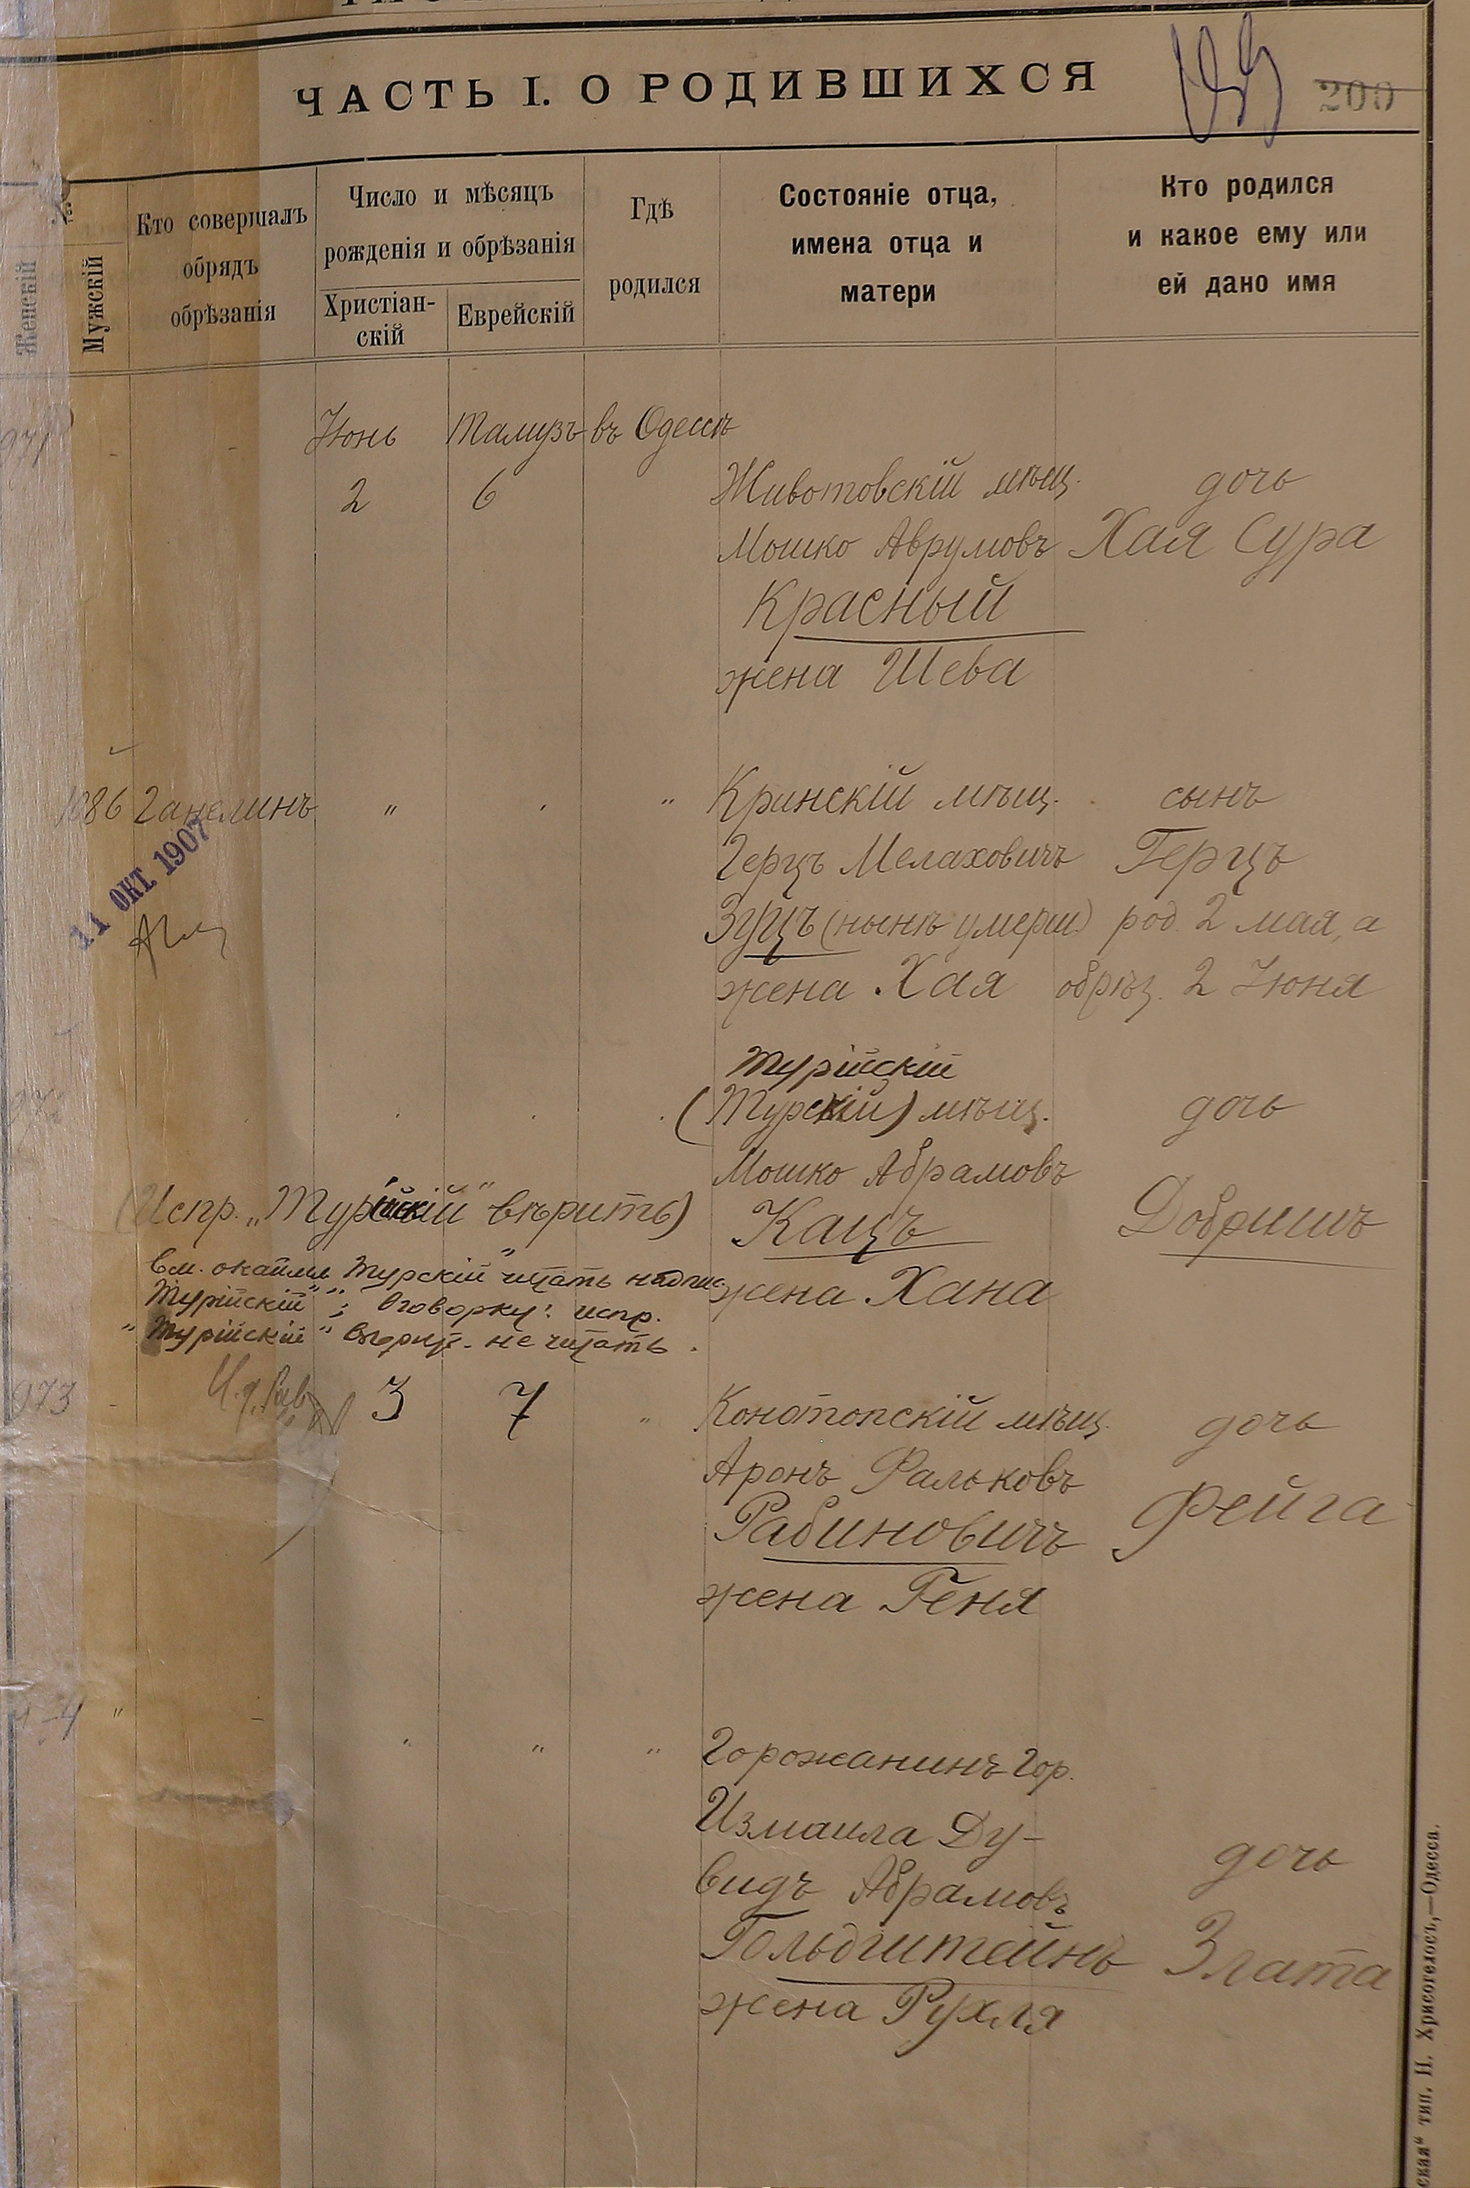 ЧАСТЬ I. О РОДИВШИХСЯ
200
Женскій
Мужскій
Кто совершалъ
обрядъ
обрѣзанія
Число и мѣсяцъ
рожденія и обрѣзанія
Христіан-
скій
Еврейскій
Гдѣ
родился
Состояніе отца,
имена отца и
матери
Кто родился
и какое ему или
ей дано имя
971 Іюнь Тамузъ въ Одессѣ
2 6 Животовскій мѣщ. дочь
Мошко Аврумовъ Хая Сура
Красный
жена Шева
1086 Ганелинъ " " Кринскій мѣщ. сынъ
11 ОКТ. 1907
Герцъ Мелаховичъ Герцъ
Зуцъ (нынѣ умерш.) род. 2 мая, а
жена Хая обрѣз. 2 Іюня
Турійскій
(Турскій) мѣщ. дочь
Мошко Абрамовъ
(Испр. „Турійскій" вѣрить) Кацъ Добришъ
вм. окаймл. „Турскій" читать надпис.
жена Хана
„Турійскій"; Оговорку: испр.
„Турійскій" вѣрит. не читать.
973 3 7 " Конотопскій мѣщ. дочь
Аронъ Фальковъ
Рабиновичъ Фейга
жена Геня
" " " Горожанинъ гор.
Измаила Ду-
видъ Абрамовъ дочь
Гольдштейнъ Злата
жена Рухля
ская" тип. Н. Хрисогелосъ,—Одесса.